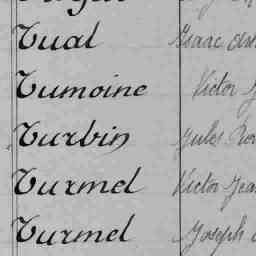 Tual Isaac
Tumoine Victor
Turbin Jules
Turmel Victor Jean
Turmel Joseph